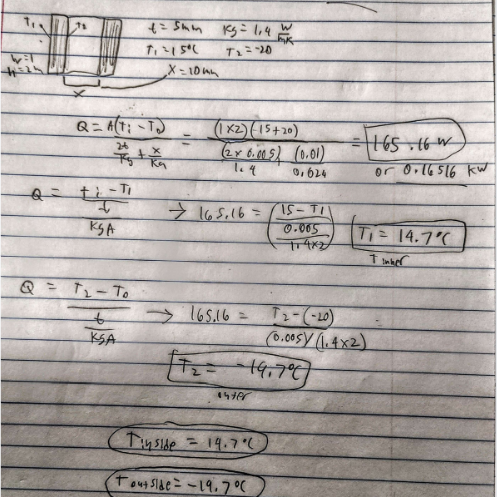 T1 T2 t = 5mm kg = 1.4 W/mK
T1 = 15°C T2 = -20
w=1
H=2m x = 10mm
x
Q = A(Ti - To) / (2t/kg + x/ka) = (1x2)(15+20) / ((2x0.005)/1.4 + (0.01)/0.024) = 165.16 W
or 0.16516 kW
Q = (ti - T1) / (t/kgA) → 165.16 = (15 - T1 / (0.005/1.4x2)) T1 = 14.7°C
Tinner
Q = (T2 - To) / (t/kgA) → 165.16 = (T2 - (-20)) / ((0.005)/(1.4x2))
T2 = -19.7°C
outer
Tinside = 14.7°C
Toutside = -19.7°C